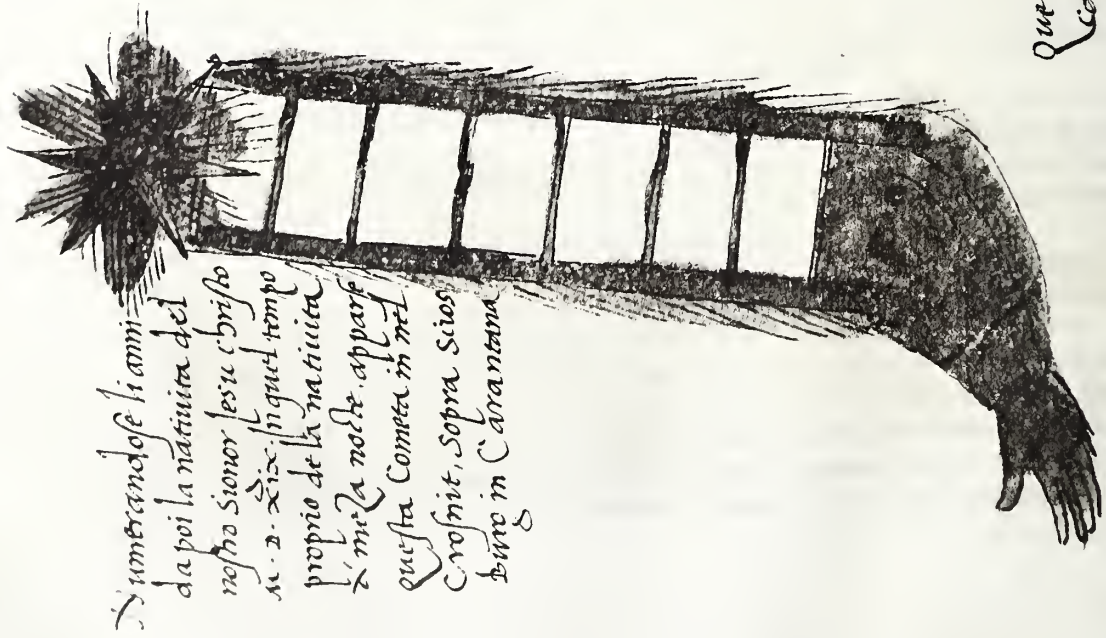 Numerandose li anni
da poi la natiuita del
nostro Sionor Iesu christo
M. D. xix. In quel tempo
proprio de la natiuita
a meza nocte apparse
questa Cometa in nel
Crosnit, Sopra Sios
burgo in Carantana
Que